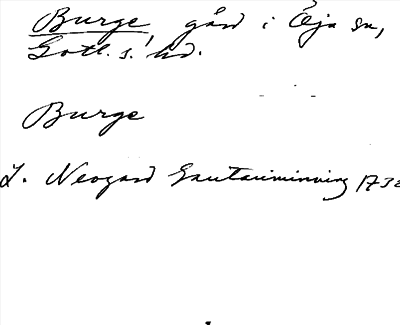 Burge, gård i Eja sn,
Gotl. s. hd.
Burge
L. Neogard Gautauminning 1732